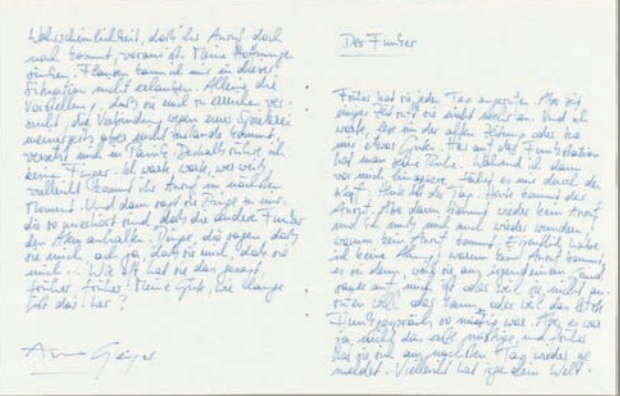 Wahrscheinlichkeit, daß ihr Anruf doch
noch kommt, voraus ist. Meine Hoffnungen
sinken. kann ich mir in dieser
Situation nicht erlauben. Allein die
Vorstellung, daß sie mich zu erreichen ver-
sucht, die Verbindung wegen einer
meinerseits aber nicht zustande kommt,
versetzt mich in Panik. Deshalb rühre ich
keine Finger. Ich warte, warte, wer weiß,
vielleicht kommt ihr Anruf im nächsten
Moment. Und dann sagt sie Dinge zu mir,
die so unerhört sind, daß die anderen Funker
den Atem anhalten. Dinge, die sagen, daß
sie mich, ach ja, daß sie mich, daß sie
mich... Wie oft hat sie das gesagt,
früher. Früher! Meine Güte, wie lange
ist das her?
Arno Geiger
Der Funker
Früher hat sie jeden Tag angerufen. Aber seit
einiger Zeit ruft sie nicht mehr an. Und ich
warte, lese in der alten Zeitung oder koche
mir etwas Gutes. Hier auf der Funkstation
hat man seine Ruhe. Während ich dann
vor mich hin, fährt es mir durch den
Kopf: Heute ist der Tag. Heute kommt der
Anruf. Aber dann kommt wieder kein Anruf
und ich muß mich auch wieder wundern,
warum kein Anruf kommt. Eigentlich habe
ich keine Ahnung, warum kein Anruf kommt,
es sei denn, weil sie aus irgendeinem Grund
sauer auf mich ist oder weil sie nicht an-
rufen will oder kann, oder weil das letzte
Funkgespräch so mäßig war. Aber es war
ja nicht das erste mäßige, und früher
hat sie sich am nächsten Tag wieder ge-
meldet. Vielleicht hat irgendein Welt-